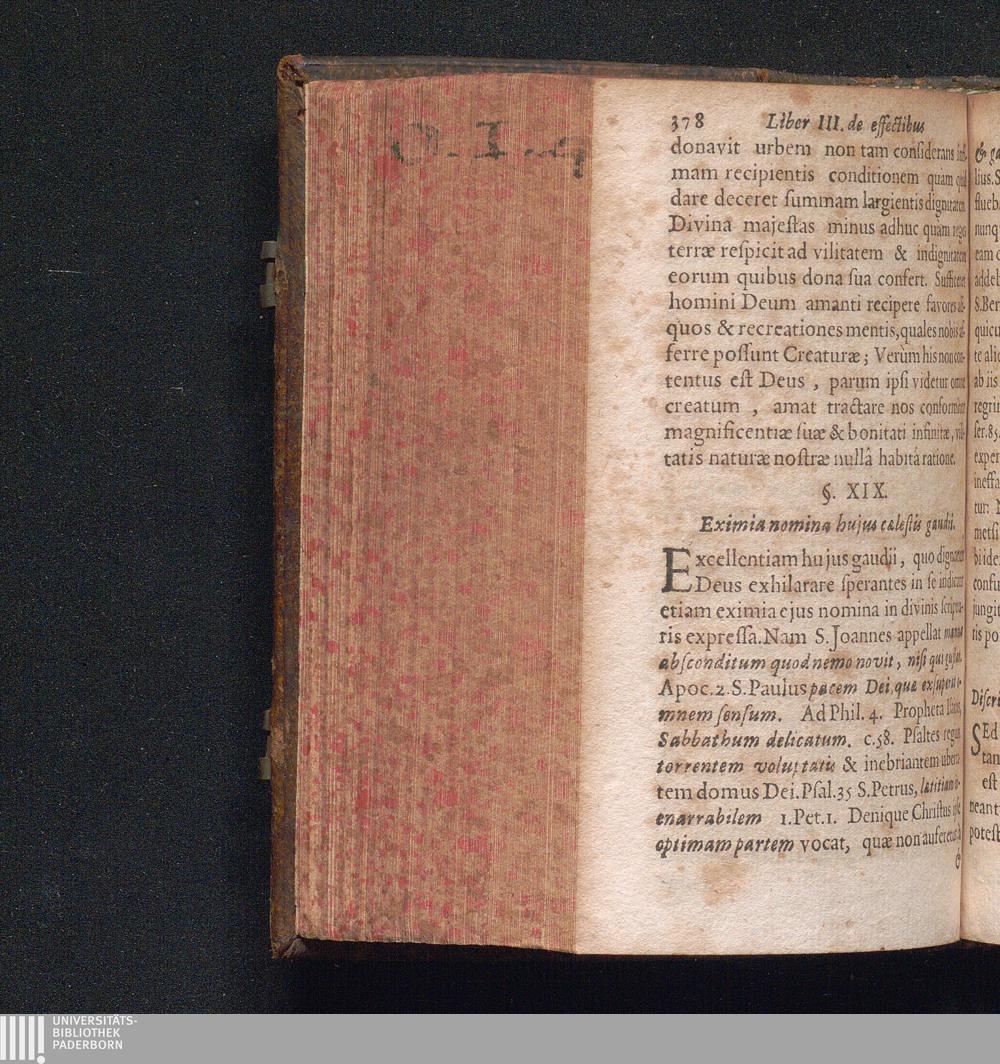 378 Liber III. de effectibus
donavit urbem non tam considerans
mam recipientis conditionem quam quid
dare deceret summam largientis dignitatem.
Divina majestas minus adhuc quàm reges
terræ respicit ad vilitatem & indignitatem
eorum quibus dona sua confert. Sufficeret
homini Deum amanti recipere favores ali-
quos & recreationes mentis, quales nobis af-
ferre possunt Creaturæ; Verùm his non con-
tentus est Deus, parum ipsi videtur omne
creatum, amat tractare nos conformiter
magnificentiæ suæ & bonitati infinitæ, vili-
tatis naturæ nostræ nullâ habitâ ratione.
§. XIX.
Eximia nomina hujus cælestis gaudii.
Excellentiam hujus gaudii, quo dignatur
Deus exhilarare sperantes in se indicant
etiam eximia ejus nomina in divinis scriptu-
ris expressa. Nam S. Joannes appellat manna
absconditum quod nemo novit, nisi qui
Apoc. 2. S. Paulus pacem Dei, quæ exsuperat o-
mnem sensum. Ad Phil. 4. Propheta Isaias
Sabbathum delicatum. c. 58. Psaltes regius
torrentem voluptatis & inebriantem uberta-
tem domus Dei. Psal. 35 S. Petrus, lætitiam
enarrabilem 1. Pet. 1. Denique Christus ipse
optimam partem vocat, quæ non auferetur.
&
& ga
lius. S
flueb
nunq
eam
addeb
S. Ber
quicu
te alic
ab iis
regrin
ser. 85.
exper
ineffa
tur:
metsi
bi ide
confu
jungit
tis po
Discri
SEd
tan
est
neant
potest
UNIVERSITÄTS-
BIBLIOTHEK
PADERBORN